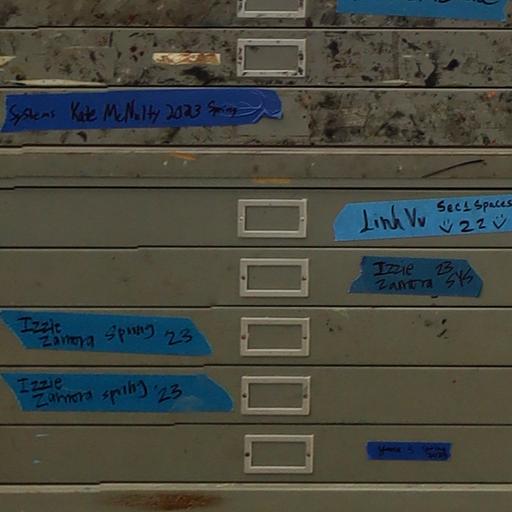 Systems Kate McNulty 2023 Spring
Linh Vu Sec 1 Spaces
22
Izzie 23
Zamora SYS
Izzie
Zamora Spring 23
Izzie
Zamora spring '23
Spring